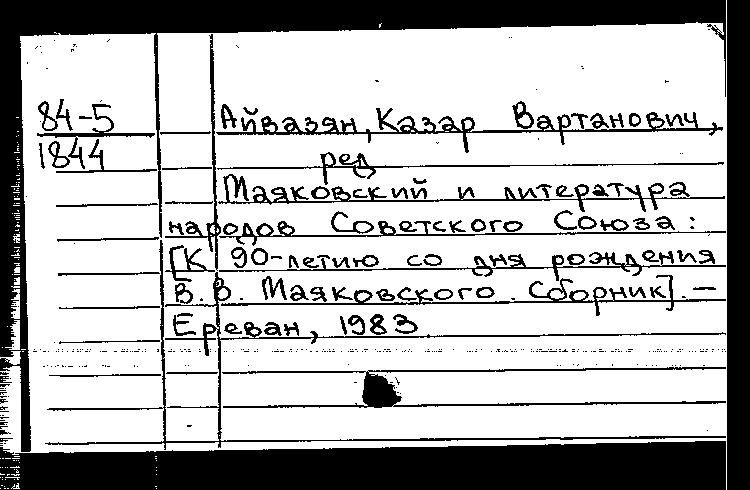 84-5
1844
Айвазян, Казар Вартанович,
ред
Маяковский и литература
народов Советского Союза:
[К 90-летию со дня рождения
В.В. Маяковского. Сборник]. —
Ереван, 1983